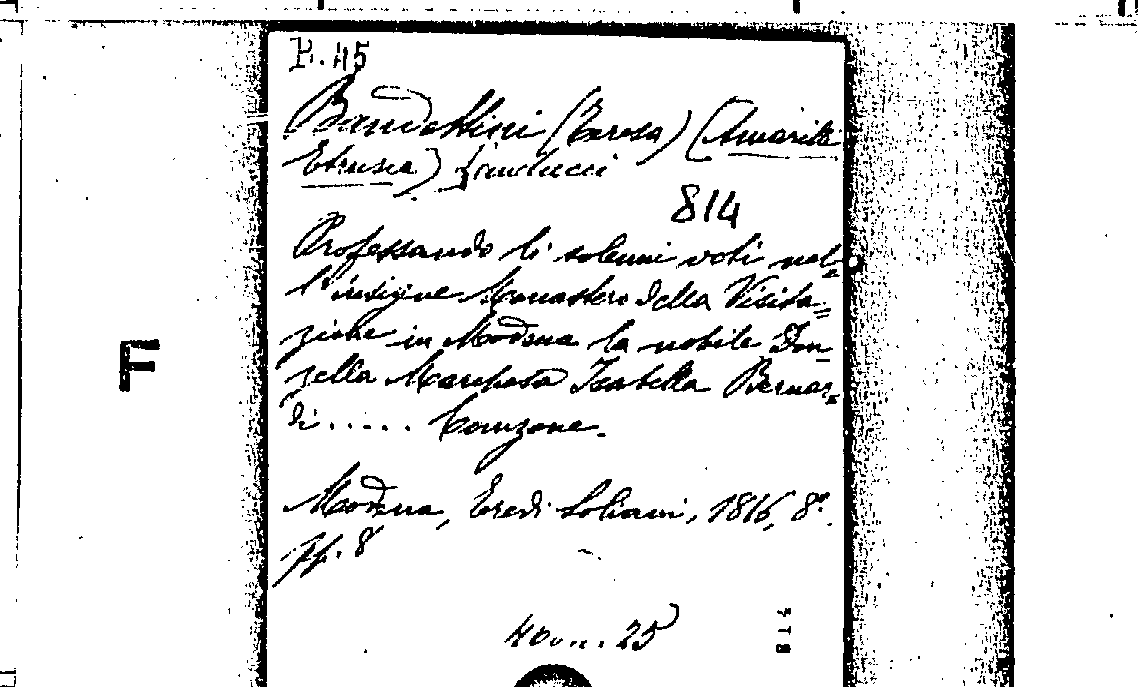 B. 45
Bandettini (Teresa) (Amarilli
Etrusca) Landucci
814
Professando li solenni voti nel-
l'insigne Monastero della Visita=
zione in Modena la nobile Don-
zella Marchesa Isabella Bernar=
di..... Canzone.
F
Modena, Eredi Soliani, 1816, 8º.
pp. 8
25